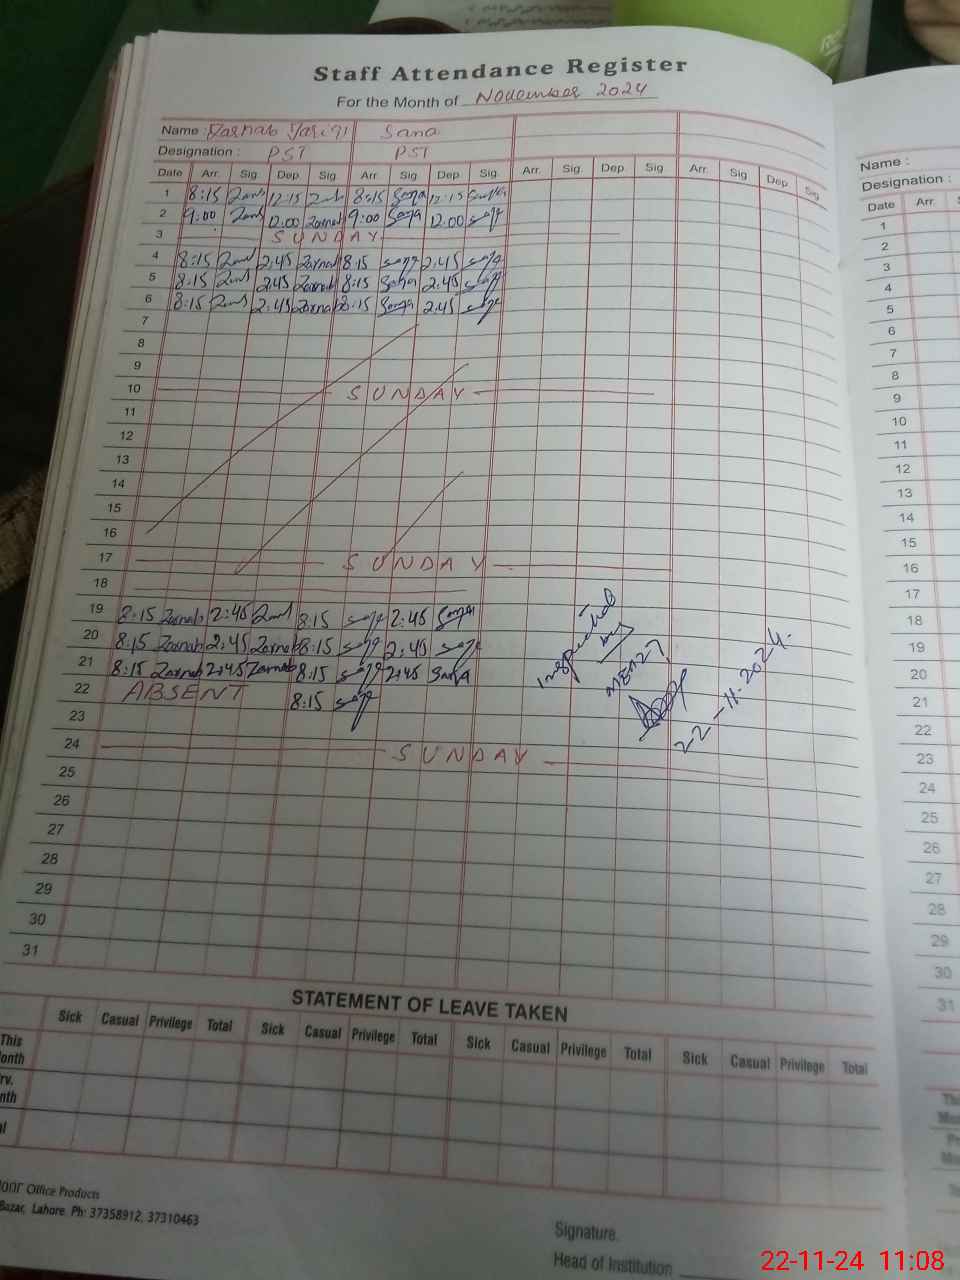 Staff Attendance Register
For the Month of November 2024
Name : Sana
Designation : PST PST
Date Arr. Sig. Dep. Sig. Arr. Sig. Dep. Sig. Arr. Sig. Dep. Sig. Arr. Sig. Dep. Sig.
1 8:15 12:15 8:15 Sana 12:15
2 9:00 12:00 Zarnab 9:00 Sana 12:00
3 SUNDAY
4 8:15 2:45 Zarnab 8:15 2:45
5 8:15 2:45 Zarnab 8:15 Sana 2:45
6 8:15 2:45 Zarnab 8:15 Sana 2:45
7
8
9
10 SUNDAY
11
12
13
14
15
16
17 SUNDAY
18
19 8:15 Zarnab 2:45 8:15 2:45 Sana
20 8:15 Zarnab 2:45 Zarnab 8:15 2:45
21 8:15 Zarnab 2:45 Zarnab 8:15 2:45 Sana
22 ABSENT 8:15
23
24 SUNDAY
25
26
27
28
29
30
31
by
22-11-2024.
STATEMENT OF LEAVE TAKEN
Sick Casual Privilege Total Sick Casual Privilege Total Sick Casual Privilege Total Sick Casual Privilege Total
This
onth
rv.
nth
al
Office Products
Bazar, Lahore. Ph: 37358912, 37310463
Signature.
Head of Institution
Name :
Designation :
Date Arr.
1
2
3
4
5
6
7
8
9
10
11
12
13
14
15
16
17
18
19
20
21
22
23
24
25
26
27
28
29
30
31
22-11-24 11:08